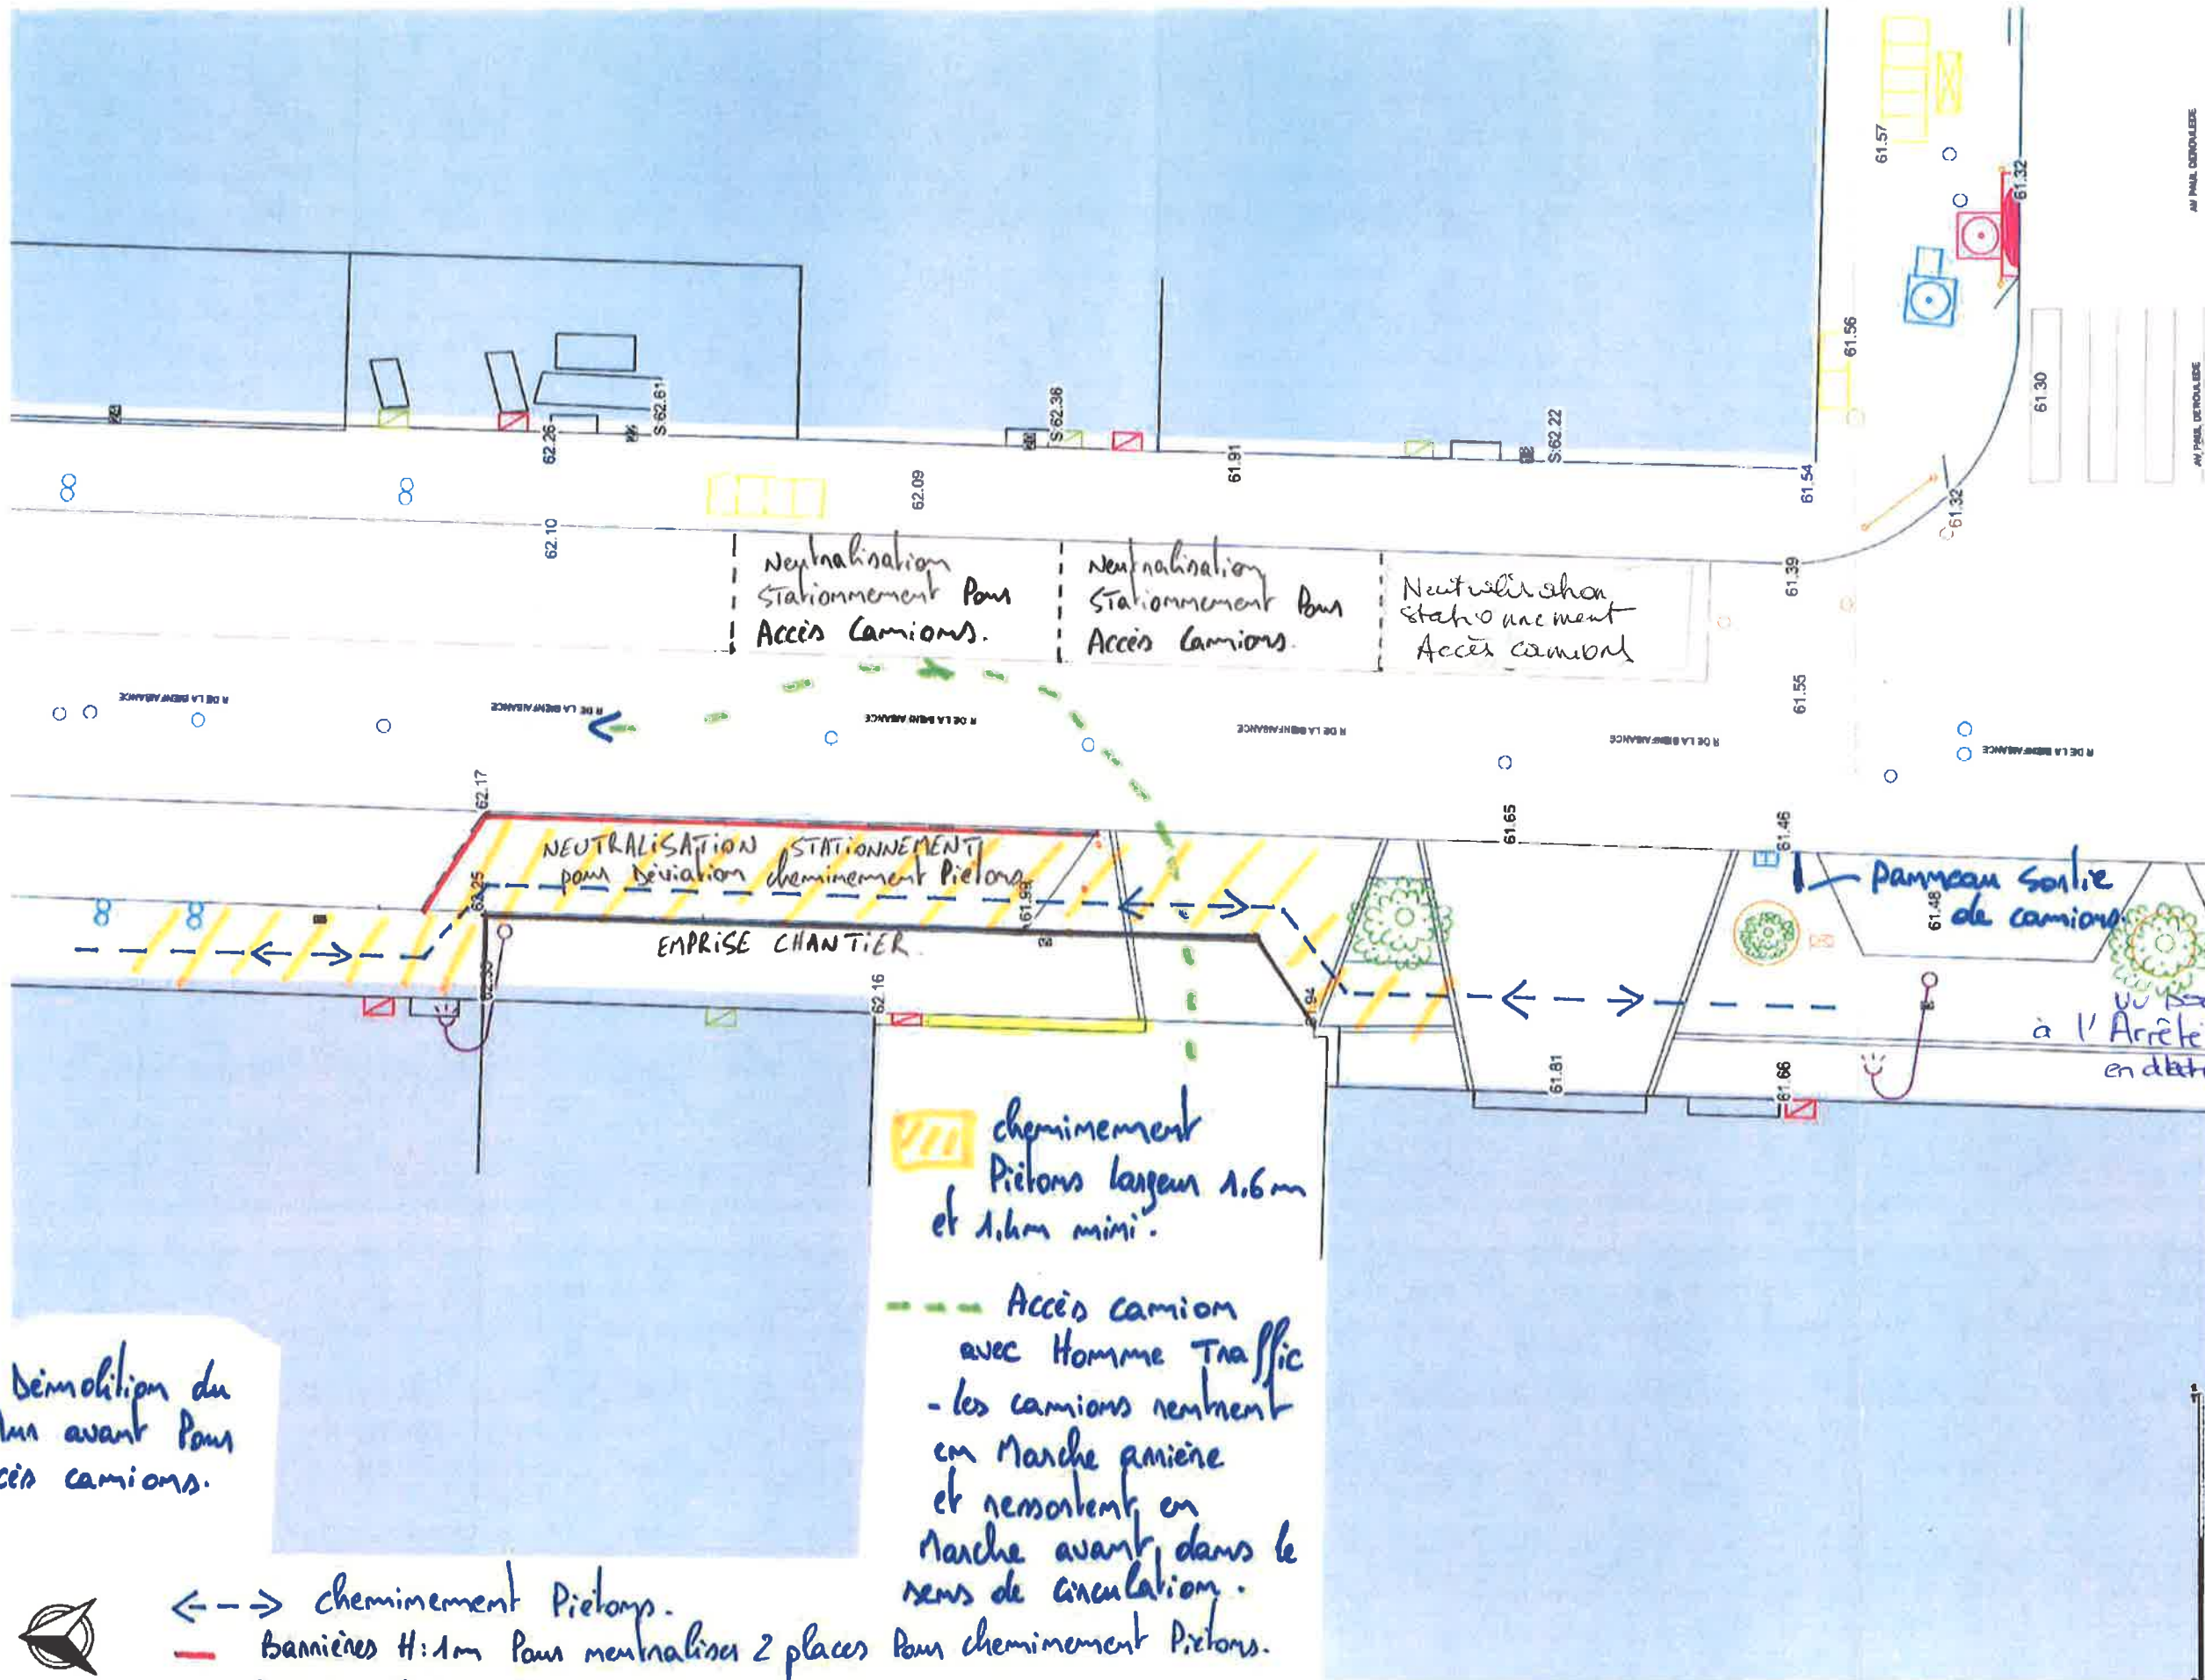 61.57
AV PAUL DEROULEDE
61.32
61.56
61.30
AV PAUL DEROULEDE
S:62.61
62.26
S:62.36
61.91
S:62.22
61.54
61.32
62.09
62.10
61.39
Neutralisation
Stationnement Pour
Accès Camions.
Neutralisation
Stationnement Pour
Accès Camions.
Neutralisation
stationnement
Accès camions
61.55
R DE LA BIENFAISANCE
R DE LA BIENFAISANCE
R DE LA BIENFAISANCE
R DE LA BIENFAISANCE
R DE LA BIENFAISANCE
R DE LA BIENFAISANCE
62.17
61.65
61.46
NEUTRALISATION STATIONNEMENT
pour Déviation cheminement Piétons
62.25
61.99
EMPRISE CHANTIER
62.16
Panneau Sortie
de camions.
61.48
à l'Arrêté
en
61.81
61.66
cheminement
Piétons largeur 1.6m
et 1.4m mini.
Accès camion
avec Homme Traffic
- les camions rentrent
en Marche arrière
et ressortent en
Marche avant dans le
sens de circulation.
Démolition du
avant Pour
camions.
cheminement Piétons.
Barrières H:1m Pour neutraliser 2 places Pour cheminement Piétons.